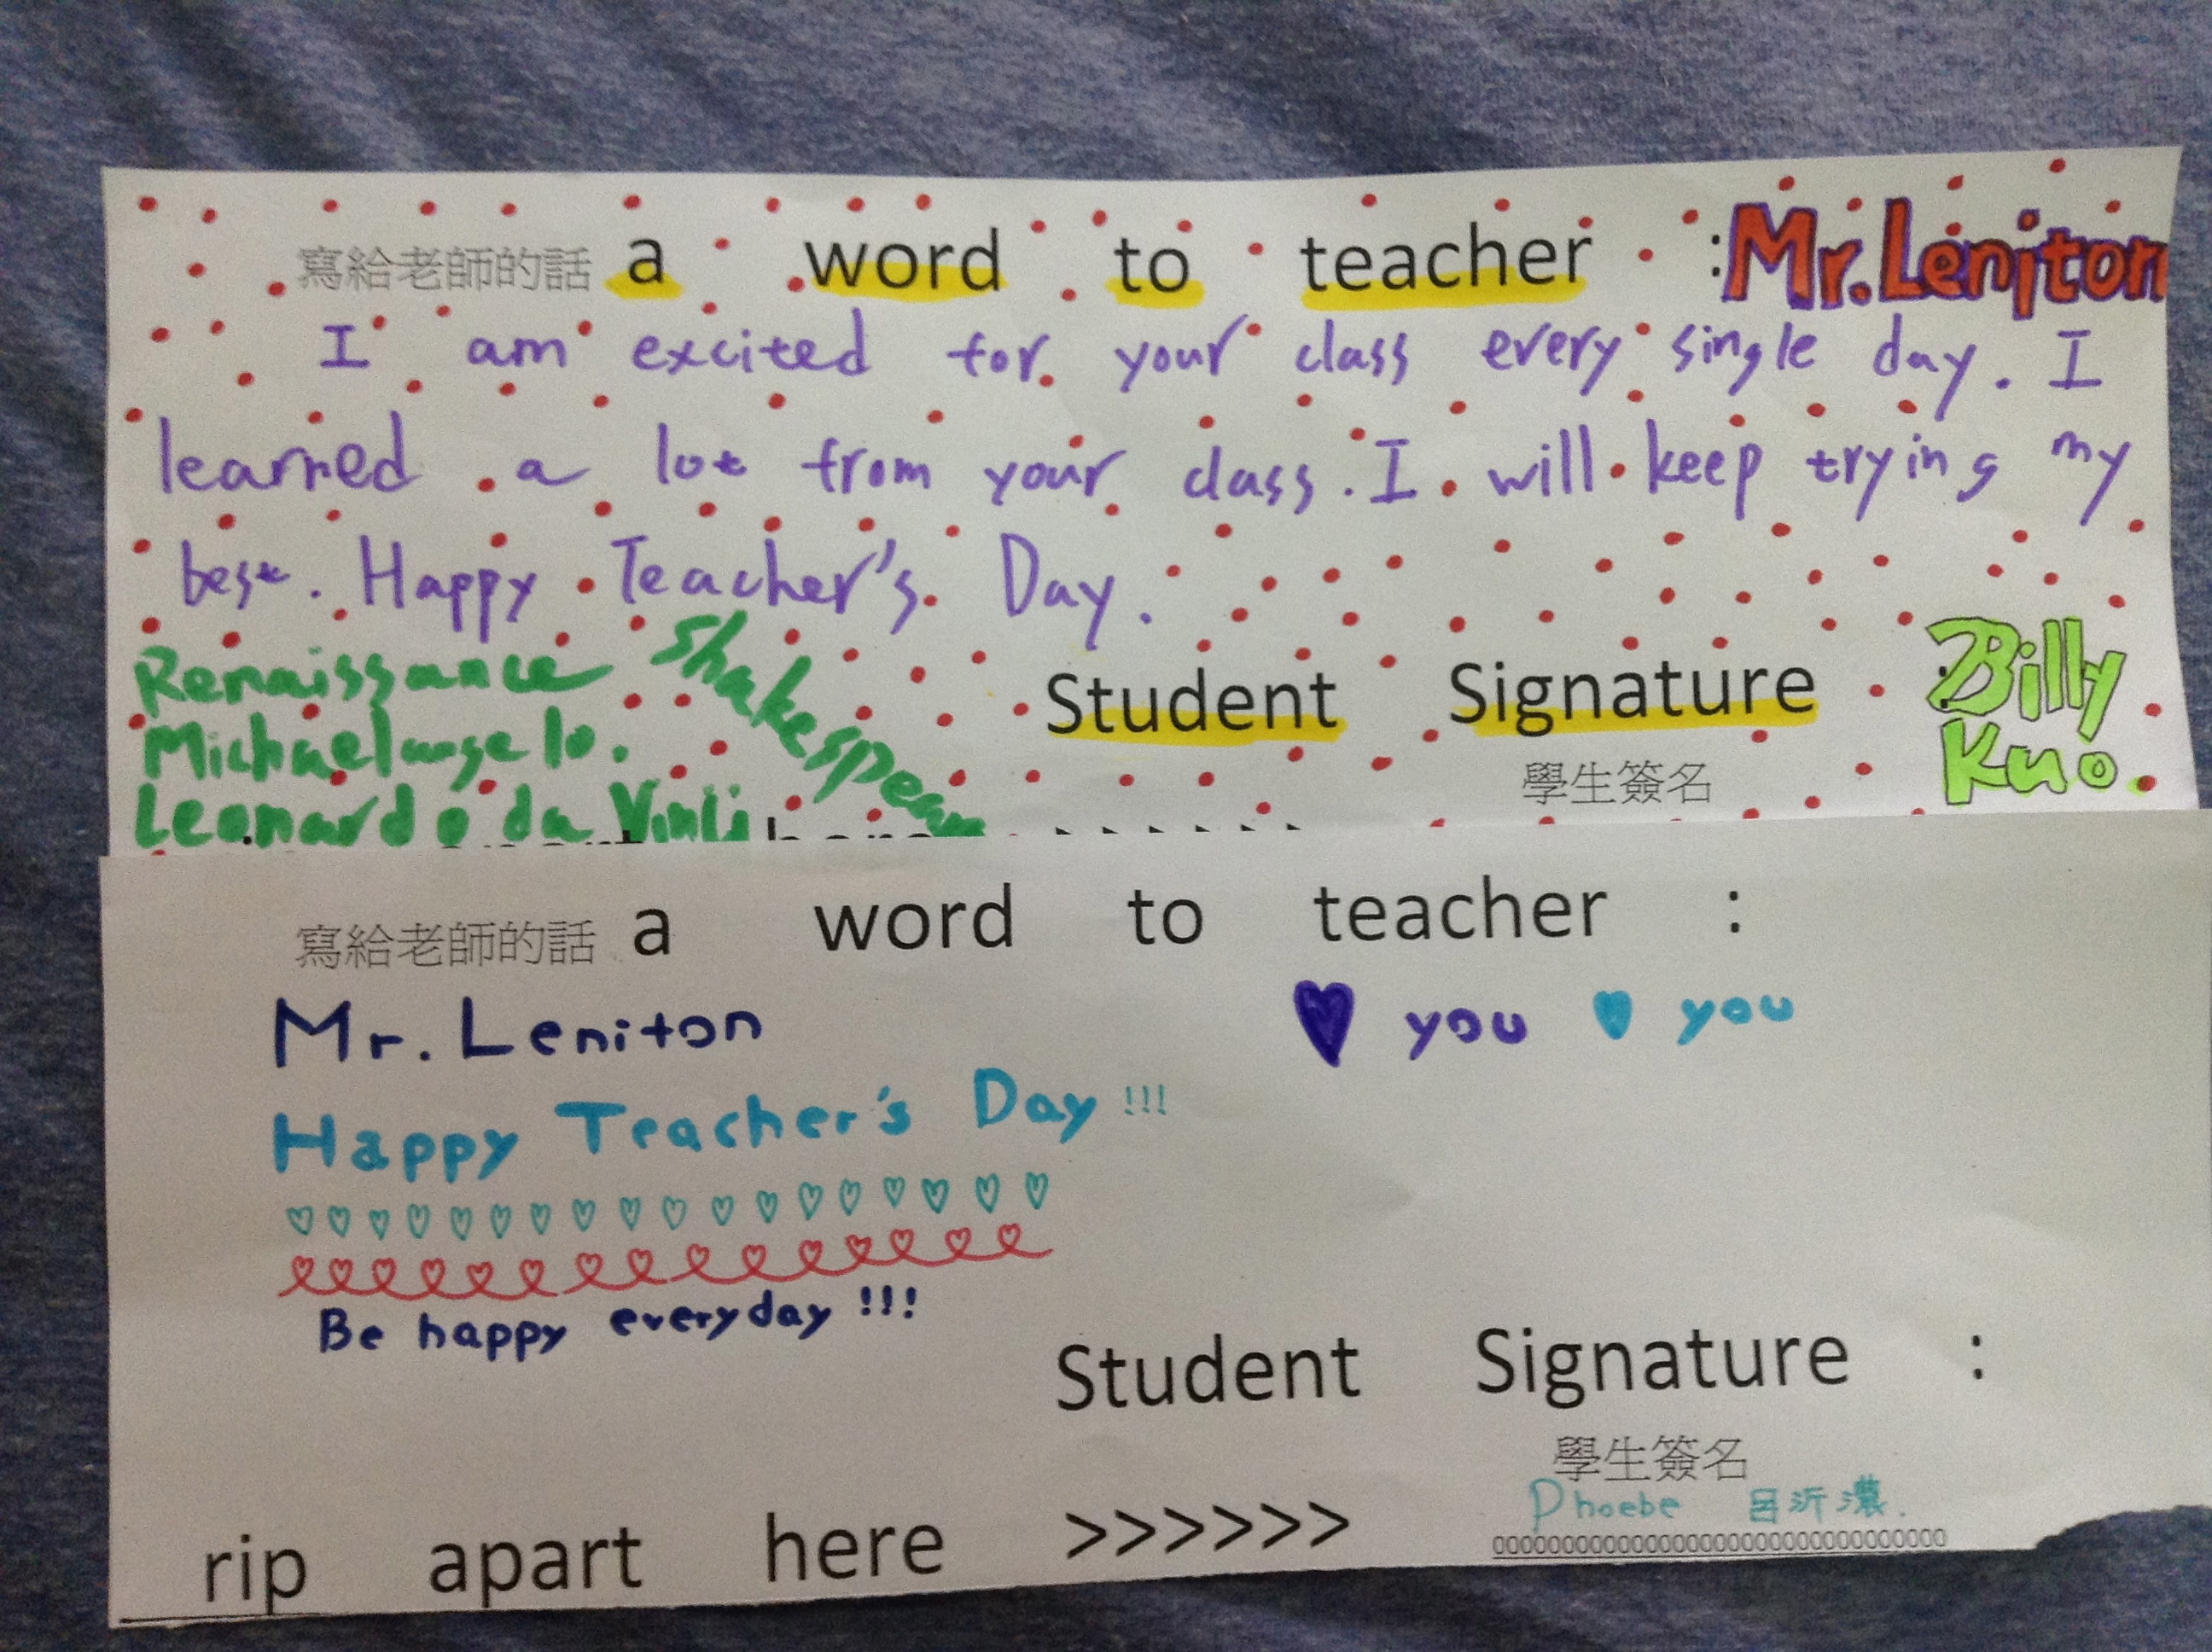 寫給老師的話 a word to teacher :Mr. Leniton
I am excited for your class every single day. I
learned a lot from your class. I will keep trying my
best. Happy Teacher's Day.
Renaissance Shakespeare
Michaelangelo.
Leonardo da Vinli
Student Signature : Billy
Kuo.
學生簽名
寫給老師的話 a word to teacher :
Mr. Leniton you you
Happy Teacher's Day !!!
Be happy everyday !!!
Student Signature :
學生簽名
Phoebe 呂沂濃.
rip apart here >>>>>>